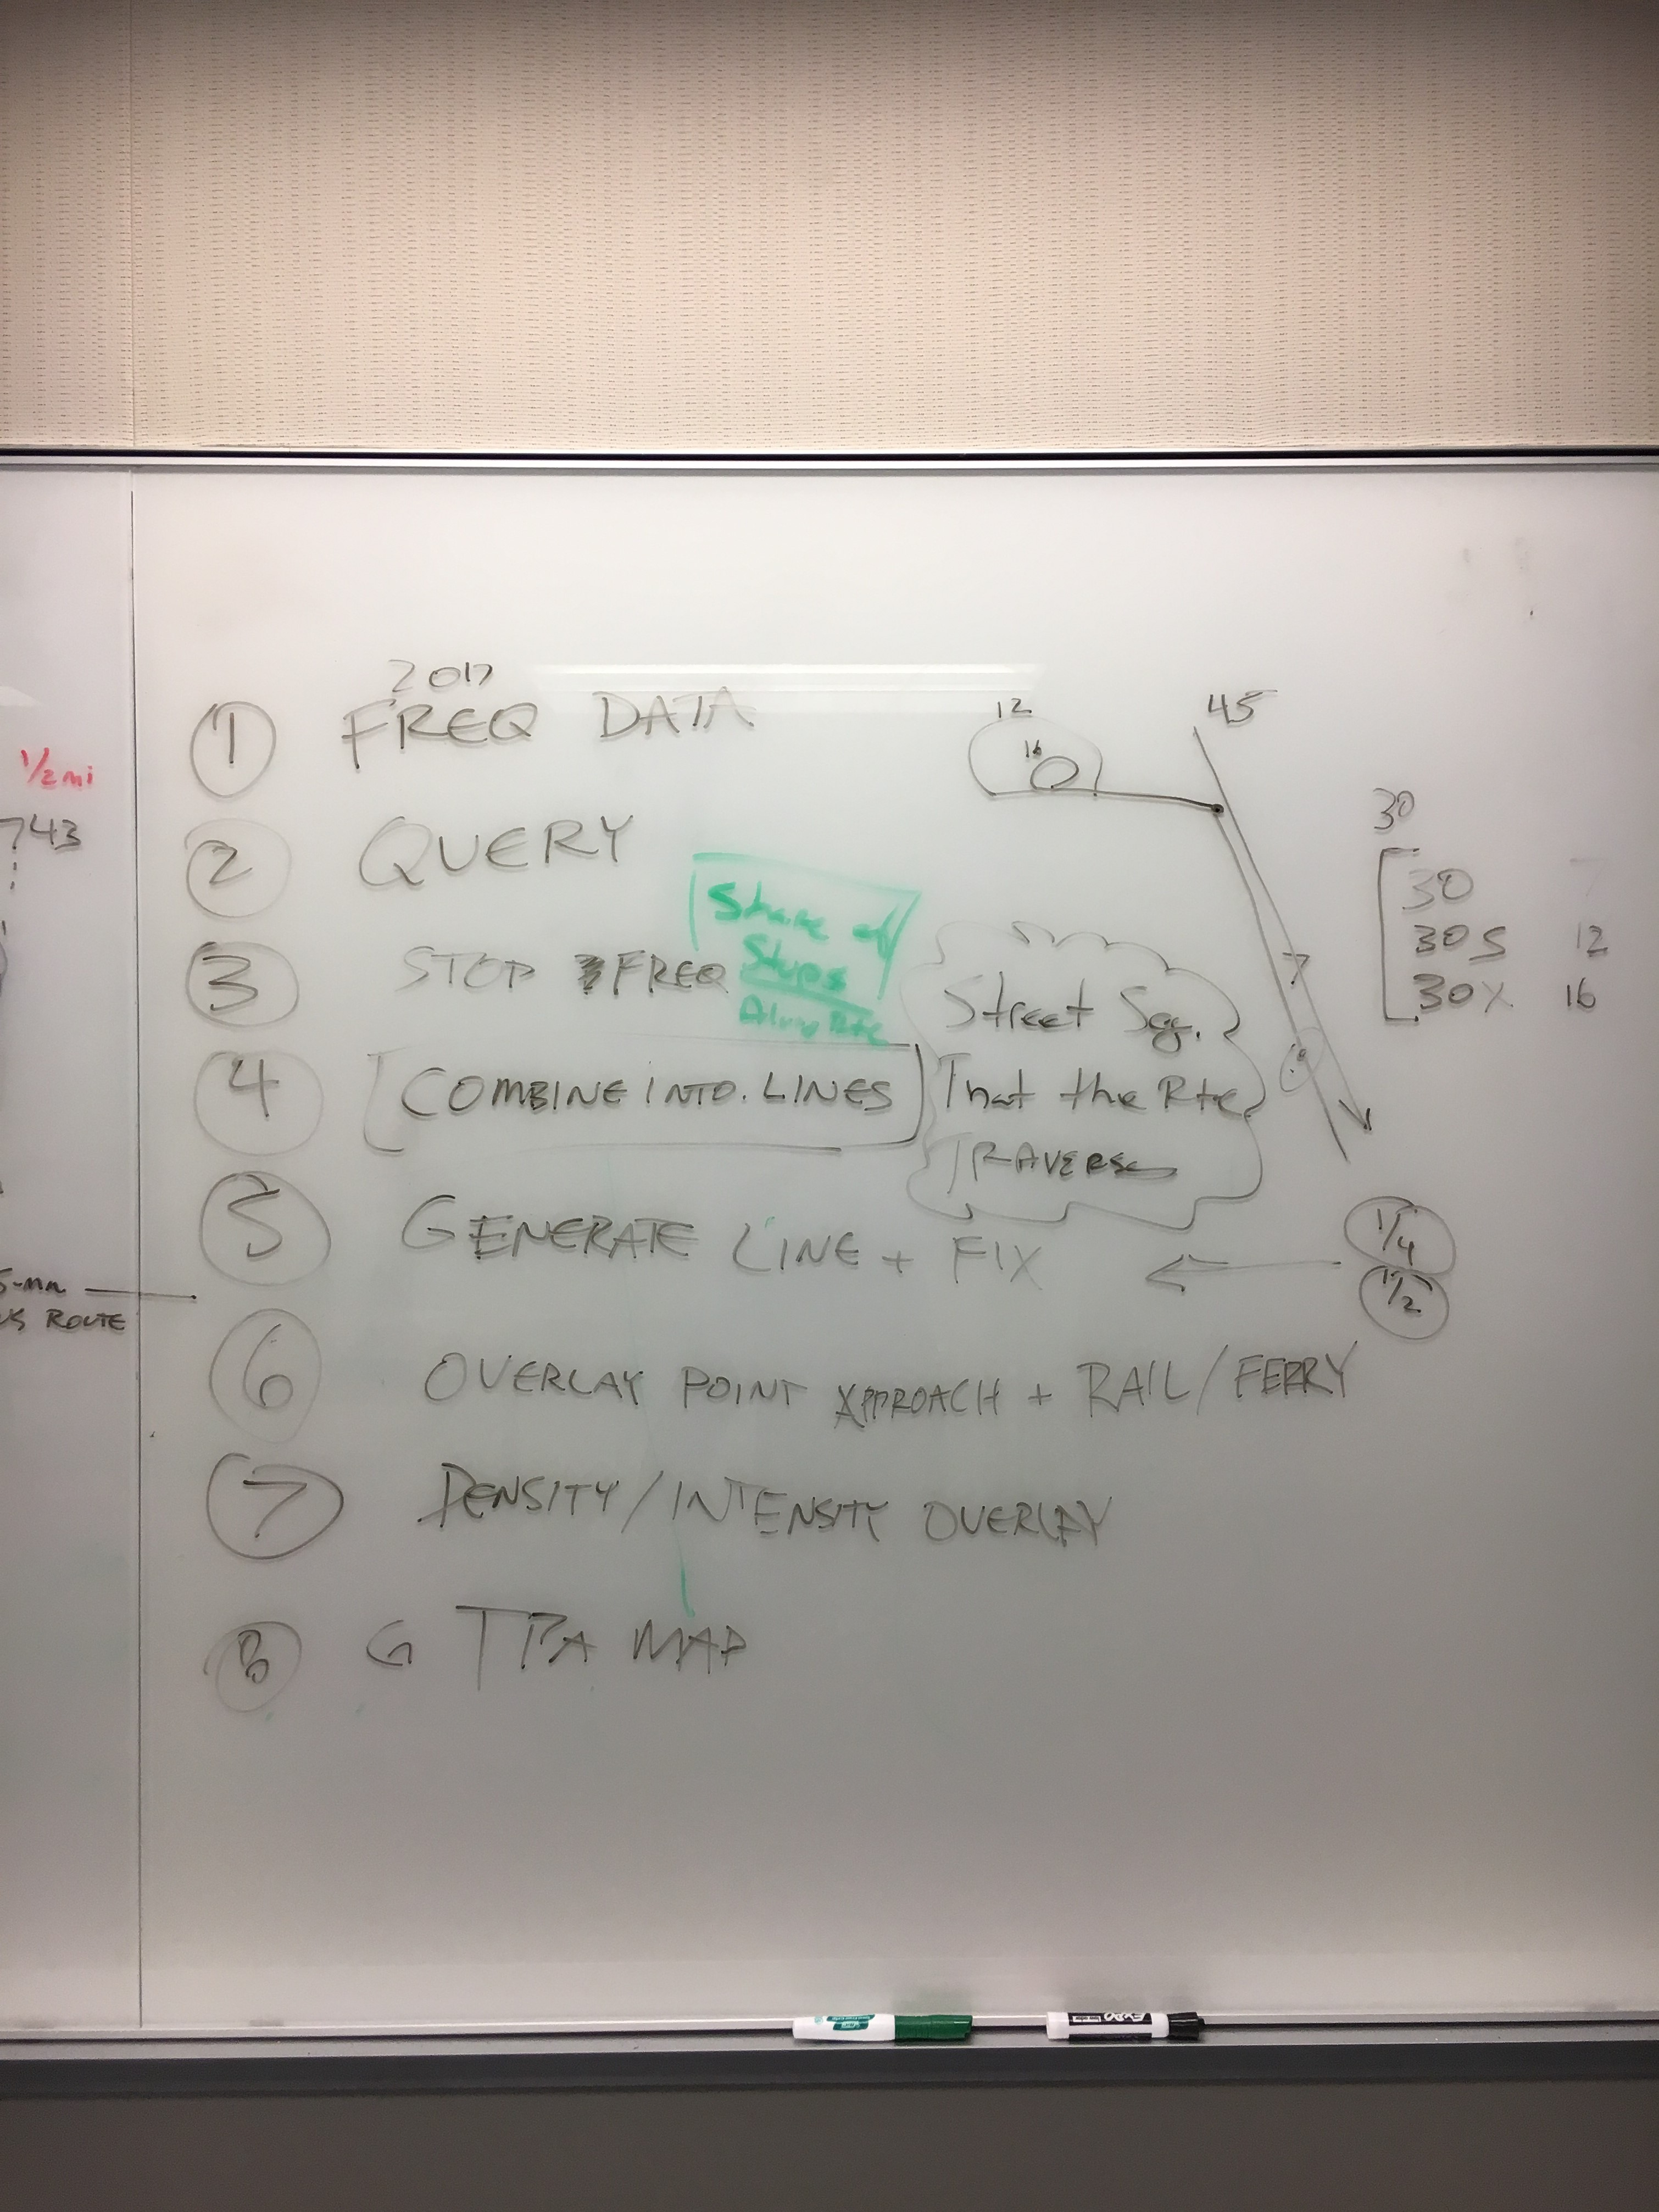 2017
1 FREQ DATA
2 QUERY
3 STOP FREQ
Share of
Stops
Along Rte
4 COMBINE INTO. LINES
Street Seg.
That the Rte
TRAVERSES
5 GENERATE LINE + FIX
1/4
1/2
6 OVERLAY POINT APPROACH + RAIL/FERRY
7 DENSITY/INTENSITY OVERLAY
8 G TPA MAP
12
16
45
30
30
30S 12
30X 16
1/2 mi
743
ROUTE
EXPO